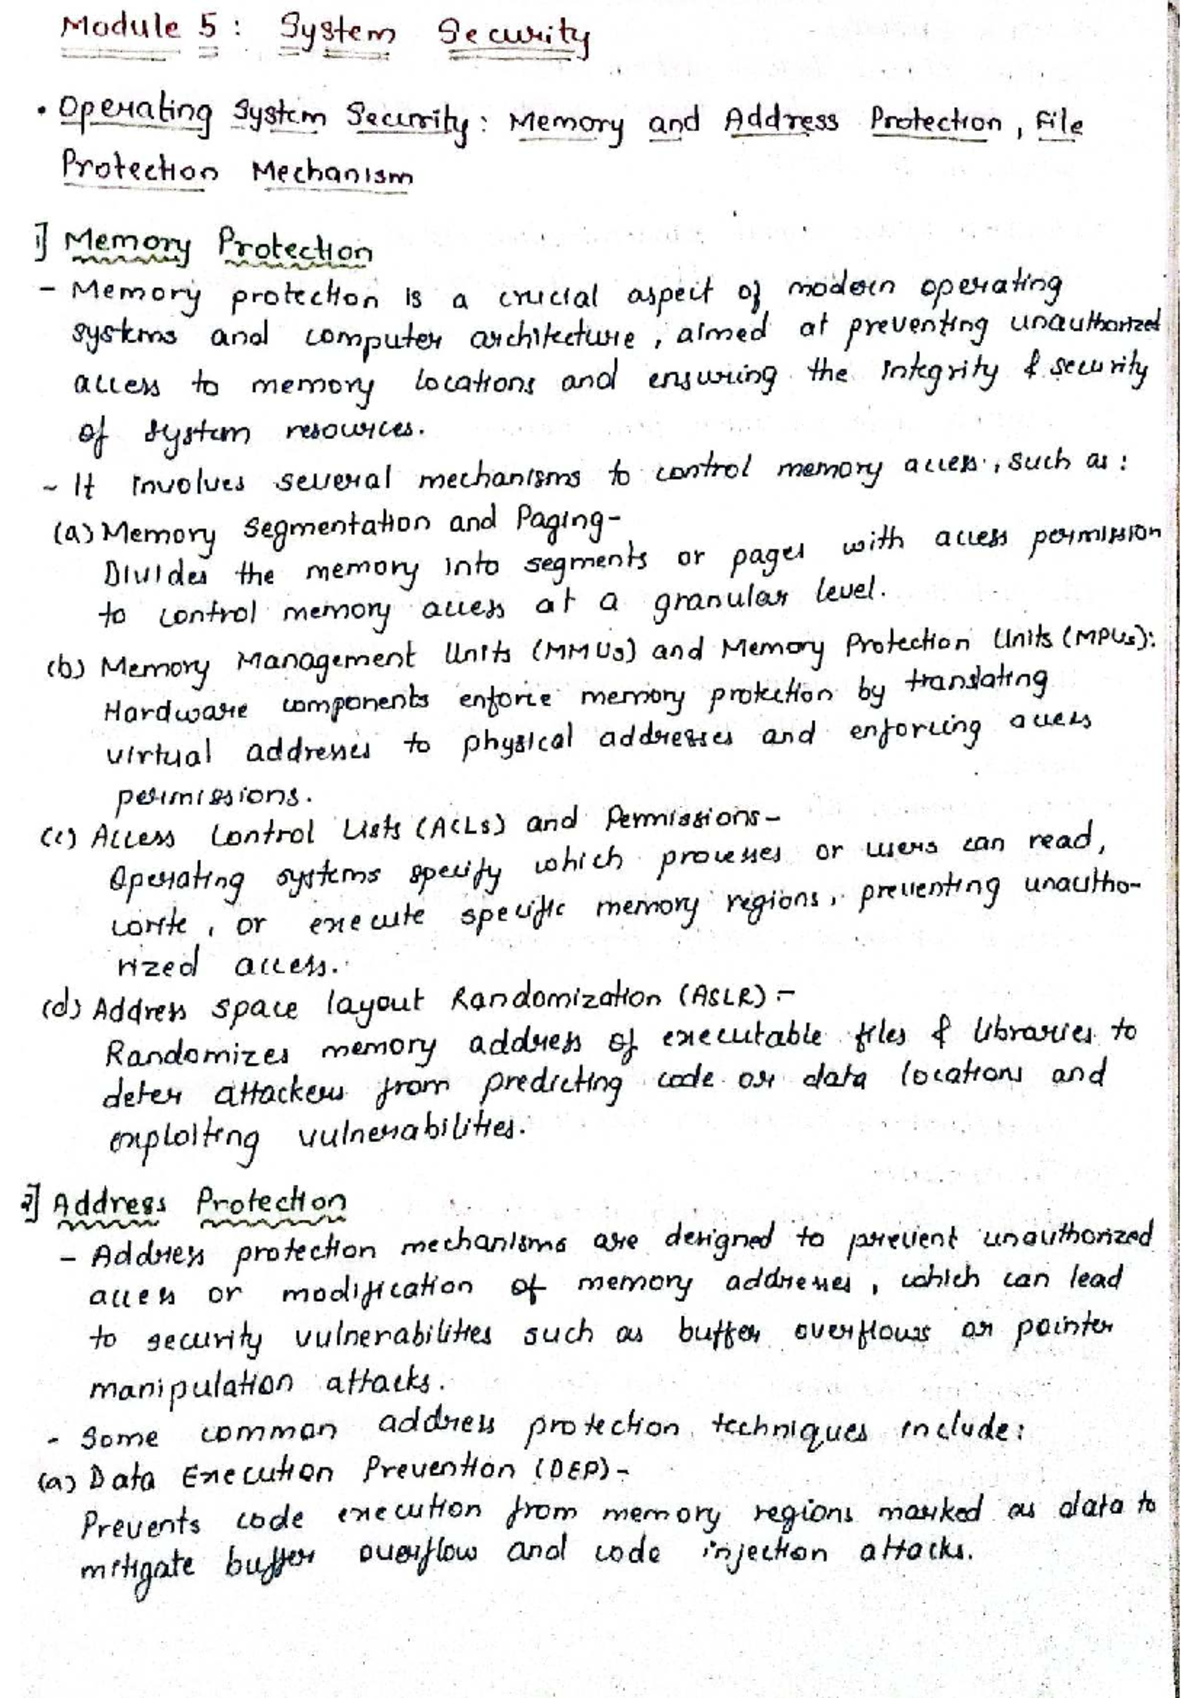 Module 5 : System Security
• Operating System Security : Memory and Address Protection , File
Protection Mechanism
1] Memory Protection
- Memory protection is a crucial aspect of modern operating
systems and computer architecture , aimed at preventing unauthorized
access to memory locations and ensuring the integrity & security
of system resources.
- It involves several mechanisms to control memory access , such as :
(a) Memory Segmentation and Paging-
Divides the memory into segments or pages with access permission
to control memory access at a granular level.
(b) Memory Management Units (MMUs) and Memory Protection Units (MPUs):
Hardware components enforce memory protection by translating
virtual addresses to physical addresses and enforcing access
permissions.
(c) Access Control Lists (ACLs) and Permissions-
Operating systems specify which processes or users can read,
write , or execute specific memory regions , preventing unautho-
rized access.
(d) Address space layout Randomization (ASLR) :-
Randomizes memory address of executable files & libraries to
deter attackers from predicting code or data locations and
exploiting vulnerabilities.
2] Address Protection
- Address protection mechanisms are designed to prevent unauthorized
access or modification of memory addresses , which can lead
to security vulnerabilities such as buffer overflows or pointer
manipulation attacks.
- Some common address protection techniques include:
(a) Data Execution Prevention (DEP)-
Prevents code execution from memory regions marked as data to
mitigate buffer overflow and code injection attacks.